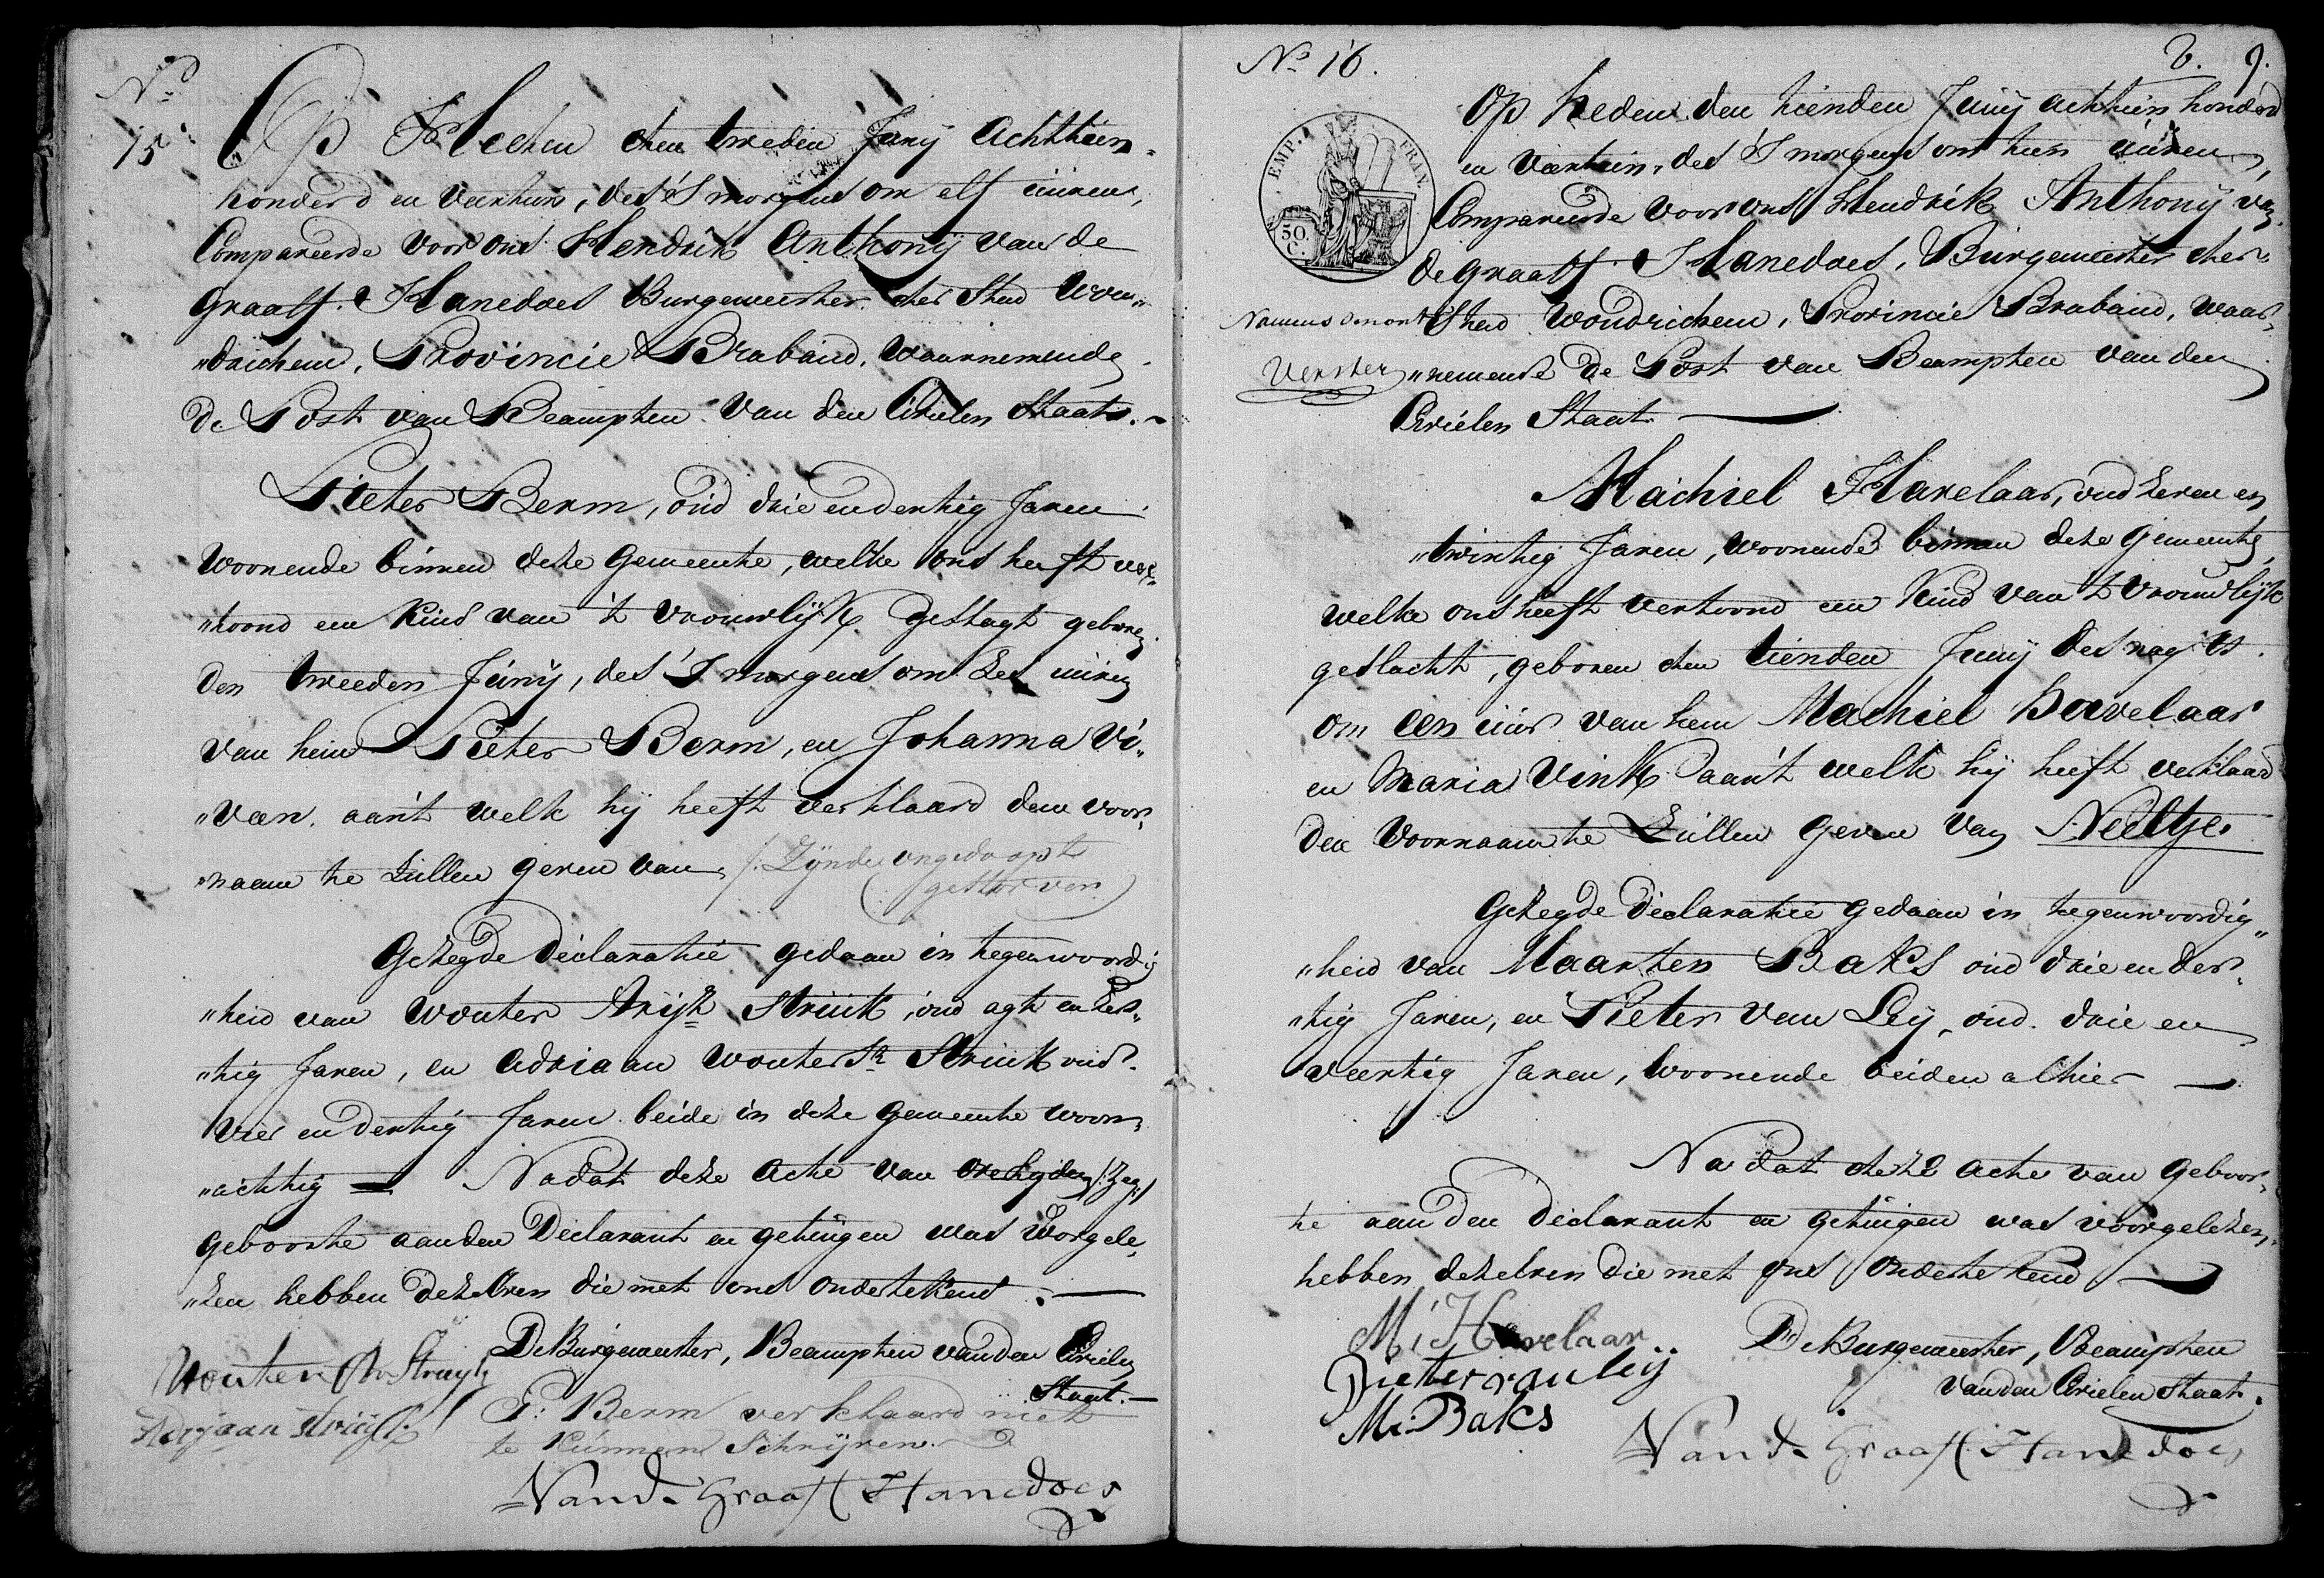 No
15.
Op Heden den tweden Junij Achttien„
honderd en veertien, des 'S morgens om elf uuren,
Compareerde voor ons Hendrik Anthonij van de
Graaff. Hanedoes Burgemeester der Stad Wou„
„drichem, Provincie Braband, waarnemende
de Post van Beampten van den Civielen Staat.
Pieter Berm, oud drie en dertig Jaren
woonende binnen deze Gemeente, welke ons heeft ver„
„toond een Kind van 't vrouwlijk geslagt geboren
den tweeden Junij, des 'S morgens om Zes uuren
van hem Pieter Berm, en Johanna Vi„
„veen. aan't welk hij heeft verklaard den voor„
„naam te Zullen geven van /. Zijnde ongedoopt
gestorven)
Gezegde Declaratie gedaan in tegenwoordig
„heid van Wouter Strijk, oud agt en Zes„
„tig Jaren, en Adriaan Wouter Sr Struik oud
vier en dertig Jaren beide in deze Gemeente woon„
„achtig Nadat deze acte van /:Zeg:/
geboorte aan den Declarant en getuigen was voorgele„
„zen hebben dezelven die met ons ondertekend.
De Burgemeester, Beampten van den Civielen
Staat.
Wouter Struyk
Adrijaan
P: Berm verklaard niet
te Kunnen Schrijven.
Van d. Graaff Hanedoes
No 16.
8. 9.
EMP. FRAN.
50.
C.
Op heden den tienden Junij achttien honderd
en veertien, des 'S morgens om tien uuren,
Compareerde voor ons Hendrik Anthonij van
de Graaff. Hanedoes, Burgemeester der
Stad Woudrichem, Provincie Braband, waar„
„nemende de Post van Beampten van den
Civielen Staat
Verster
Machiel Havelaar, oud Zeven en
„twintig Jaren, woonende binnen deze Gemeente,
welke ons heeft vertoond een Kind van 't vrouwlijk
geslacht, geboren den tienden Junij des nagts
om een uur van hem Machiel Havelaar
en Maria Vink aan't welk hij heeft verklaard
den voornaam te Zullen geven van Neeltje.
Gezegde Declaratie gedaan in tegenwoordig„
„heid van Maarten Baks oud drie en der„
„tig Jaren, en Pieter van Lij, oud drie en
veertig Jaren, woonende beiden alhier
Na dat deze acte van geboor„
te aan den Declarant en getuigen was voorgelezen,
hebben dezelven die met ons ondertekend
M: Havelaar
Pieter van lij
M: Baks
De Burgemeester, Beampten
van den Civielen Staat.
Van d. Graaff Hanedoes